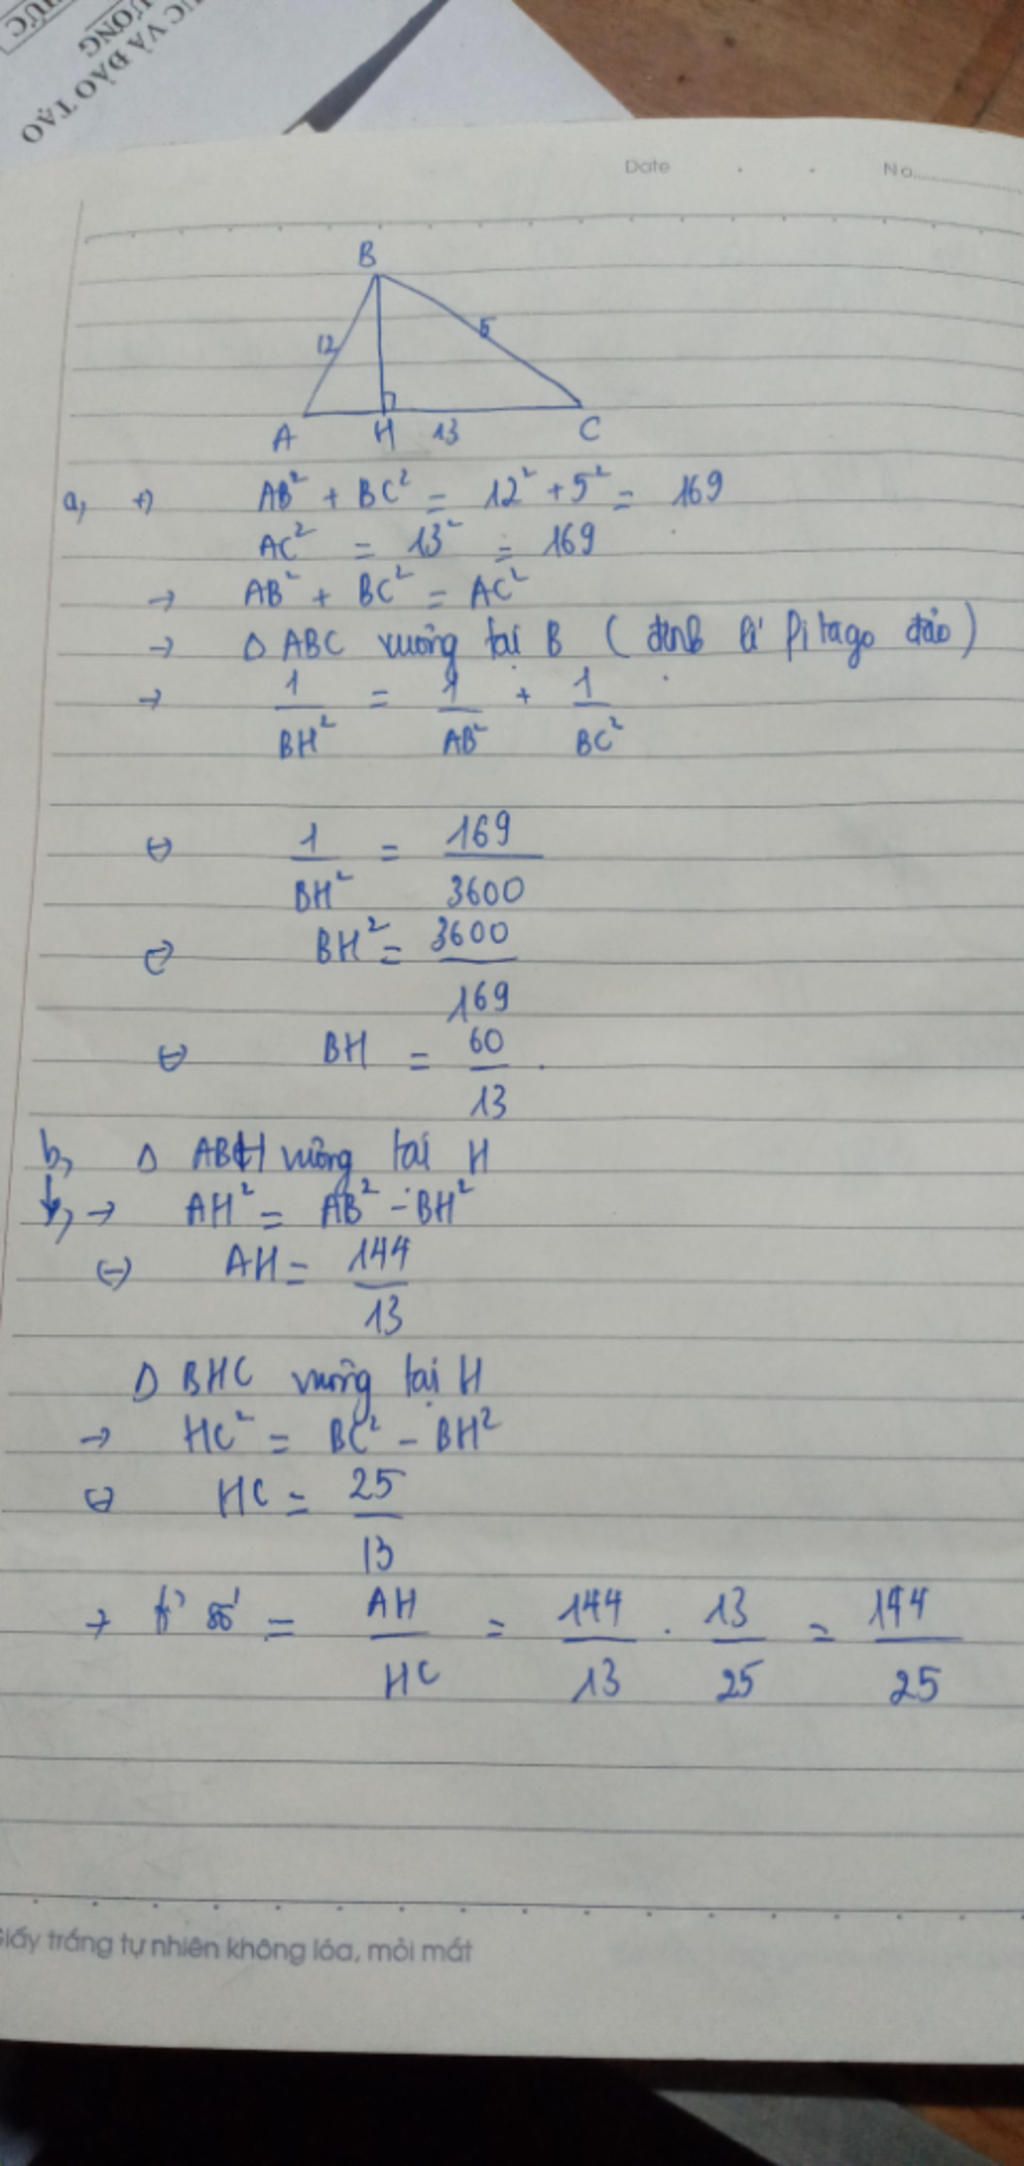 ỨC
ƯƠNG
ỤC VÀ ĐÀO TẠO
Date . . No
B
12 5
A H 13 C
a, +) AB² + BC² = 12² + 5² = 169
AC² = 13² = 169
→ AB² + BC² = AC²
→ Δ ABC vuông tại B ( định lí Pitago đảo )
→ 1/BH² = 1/AB² + 1/BC²
⇔ 1/BH² = 169/3600
⇔ BH² = 3600/169
⇔ BH = 60/13 .
b, Δ ABH vuông tại H
→ AH² = AB² - BH²
⇔ AH = 144/13
Δ BHC vuông tại H
→ HC² = BC² - BH²
⇔ HC = 25/13
→ tỉ số = AH/HC = 144/13 . 13/25 = 144/25
Giấy trắng tự nhiên không lóa, mỏi mắt